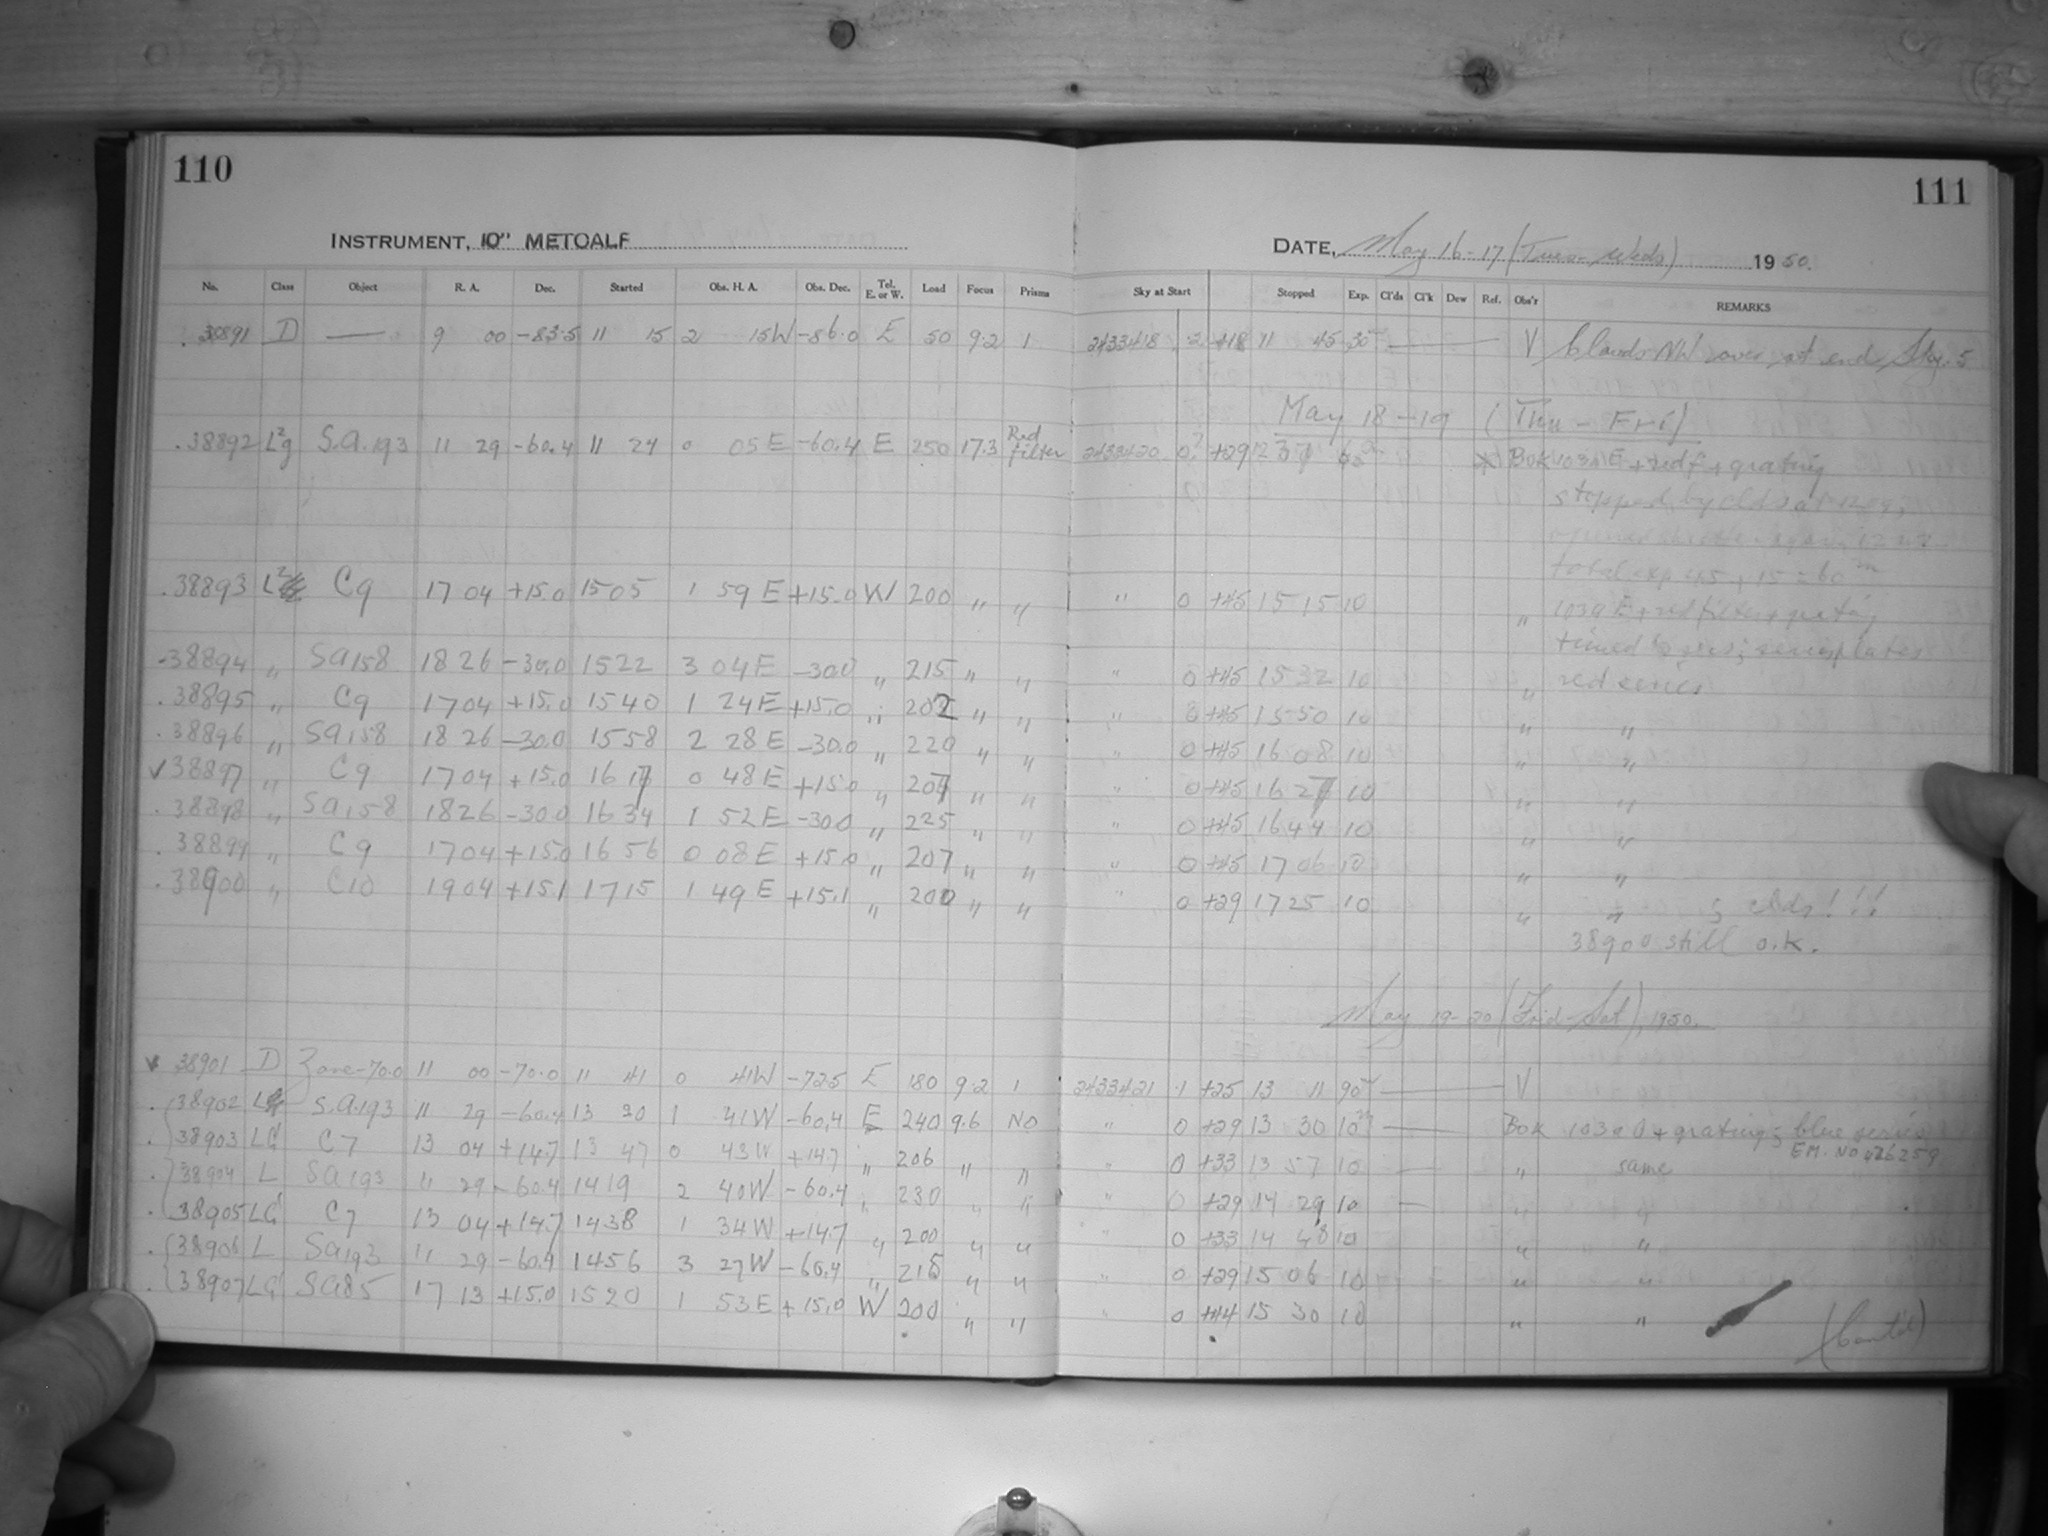 110
111
INSTRUMENT, 10" METCALF
DATE, May 16-17 (Tues-Weds) 1950.
No. Class Object R. A. Dec. Started Obs. H. A. Obs. Dec. Tel. E. or W. Load Focus Prisms Sky at Start Stopped Exp. Cl'ds Cl'k Dew Ref. Obs'r REMARKS
38891 D — 9 00 -83.5 11 15 2 15W -86.0 E 50 9.2 1 2433418 .2 +18 11 45 30m V Clouds NW over at end Sky .5
May 18-19 (Thu - Fri)
38892 L2g S.A.193 11 29 -60.4 11 24 0 05 E -60.4 E 250 17.3 Red filter 2433420 0? +29 12 37 60 * Bok 103aE + red f + grating
stopped by clds at
total exp 45 + 15 = 60m
38893 L2 C9 17 04 +15.0 1505 1 59 E +15.0 W 200 " " " 0 +45 15 15 10 " 103aE + red filter + grating
-38894 " SA158 18 26 -30.0 1522 3 04E -30.0 " 215 " " " 0 +45 1532 10 " red series
.38895 " C9 1704 +15.0 1540 1 24E +15.0 " 202 " " " 0 +45 1550 10 " "
.38896 " SA158 18 26 -30.0 1558 2 28 E -30.0 " 220 " " " 0 +45 16 08 10 " "
✓38897 " C9 1704 +15.0 1617 0 48E +15.0 " 204 " " " 0 +45 1627 10 " "
.38898 " SA158 1826 -30.0 1634 1 52E -30.0 " 225 " " " 0 +45 1644 10 " "
.38899 " C9 1704 +15.0 1656 0 08E +15.0 " 207 " " " 0 +45 1706 10 " "
.38900 " C10 1904 +15.1 1715 1 49E +15.1 " 200 " " " 0 +29 1725 10 " " ; clds!!!
38900 still o.k.
May 19-20 (Frid-Sat), 1950.
✓ 38901 D Zone-70.0 11 00 -70.0 11 41 0 41W -72.5 E 180 9.2 1 2433421 .1 +25 13 11 90m V
.38902 L S.A.193 11 29 -60.4 13 20 1 41W -60.4 E 240 9.6 NO " 0 +29 13 30 10m Bok 103aO + grating; blue series
EM. NO 426259
.38903 LG C7 13 04 +14.7 13 47 0 43W +14.7 " 206 " " " 0 +33 13 57 10 " same
.38904 L SA193 11 29 -60.4 1419 2 40W -60.4 " 230 " " " 0 +29 14 29 10 " "
.38905 LG C7 13 04 +14.7 1438 1 34W +14.7 " 200 " " 0 +33 14 48 10 " "
.38906 L SA193 11 29 -60.4 1456 3 27W -60.4 " 215 " " " 0 +29 15 06 10 " "
.38907 LG SA85 17 13 +15.0 1520 1 53E +15.0 W 200 " " " 0 +44 15 30 10 " "
(Cont'd)